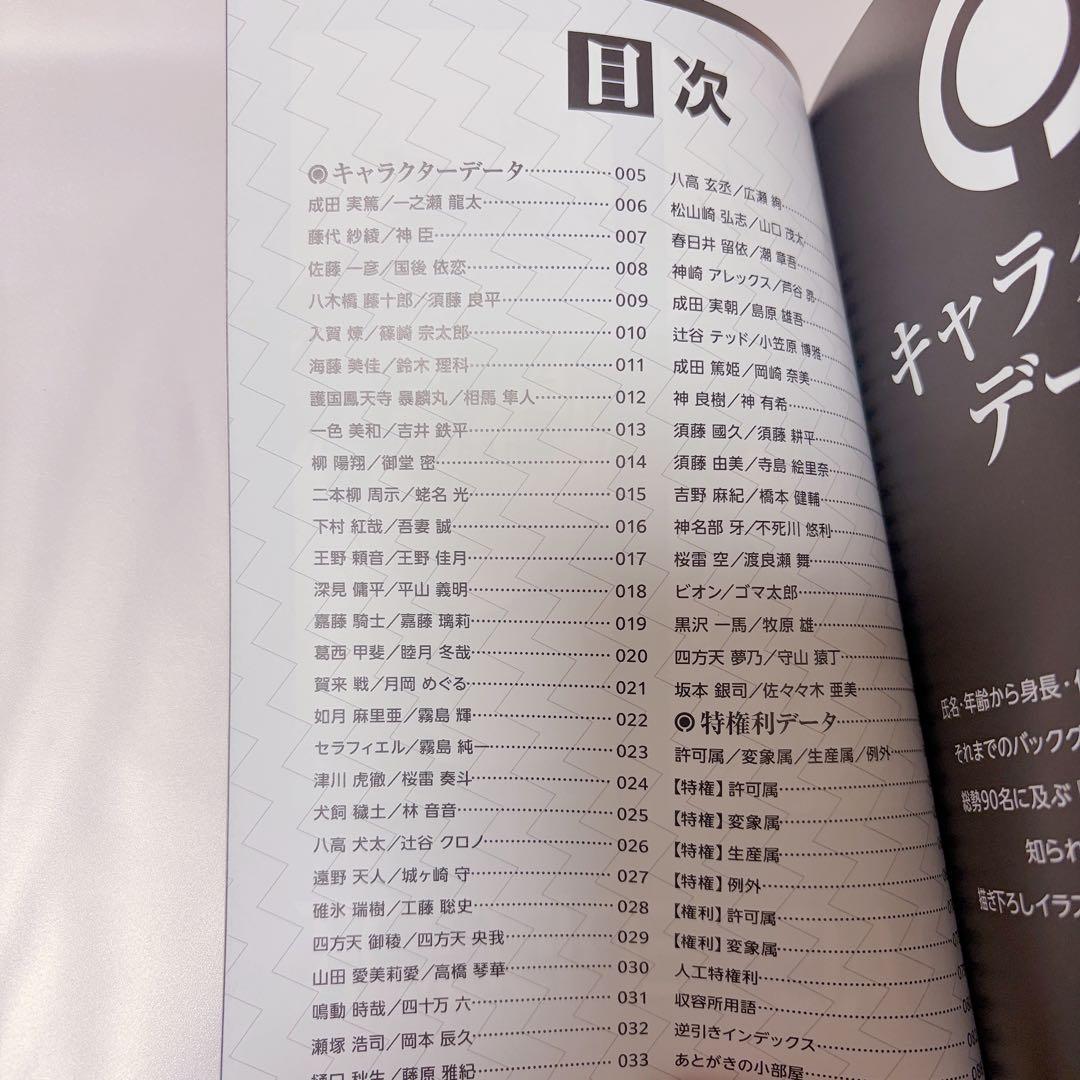 目次
キャラクターデータ……………005
成田 実篤／一之瀬 龍太……………006
藤代 紗綾／神 臣……………007
佐藤 一彦／国後 依恋……………008
八木橋 藤十郎／須藤 良平……………009
入賀 煉／篠崎 宗太郎……………010
海藤 美佳／鈴木 理科……………011
護国鳳天寺 暴麟丸／相馬 隼人……………012
一色 美和／吉井 鉄平……………013
柳 陽翔／御堂 密……………014
二本柳 周示／蛯名 光……………015
下村 紅哉／吾妻 誠……………016
王野 頼音／王野 佳月……………017
深見 傭平／平山 義明……………018
嘉藤 騎士／嘉藤 璃莉……………019
葛西 甲斐／睦月 冬哉……………020
賀来 戦／月岡 めぐる……………021
如月 麻里亜／霧島 輝……………022
セラフィエル／霧島 純一……………023
津川 虎徹／桜雷 奏斗……………024
犬飼 穢土／林 音音……………025
八高 犬太／辻谷 クロノ……………026
遠野 天人／城ヶ崎 守……………027
碓氷 瑞樹／工藤 聡史……………028
四方天 御稜／四方天 央我……………029
山田 愛美莉愛／高橋 琴華……………030
鳴動 時哉／四十万 六……………031
瀬塚 浩司／岡本 辰久……………032
樋口 秋生／藤原 雅紀……………033
八高 玄丞／広瀬 絢……………
松山崎 弘志／山口 茂太……………
春日井 留依／潮 章吾……………
神崎 アレックス／芦谷……………
成田 実朝／島原 雄吾……………
辻谷 テッド／小笠原 博雅……………
成田 篤姫／岡崎 奈美……………
神 良樹／神 有希……………
須藤 國久／須藤 耕平……………
須藤 由美／寺島 絵里奈……………
吉野 麻紀／橋本 健輔……………
神名部 牙／不死川 悠利……………
桜雷 空／渡良瀬 舞……………
ビオン／ゴマ太郎……………
黒沢 一馬／牧原 雄……………
四方天 夢乃／守山 猿丁……………
坂本 銀司／佐々々木 亜美……………
特権利データ……………
許可属／変象属／生産属／例外……………
【特権】許可属……………
【特権】変象属……………
【特権】生産属……………
【特権】例外……………
【権利】許可属……………
【権利】変象属……………
人工特権利……………
収容所用語……………
逆引きインデックス……………
あとがきの小部屋……………
キャラク
デー
氏名・年齢から身長・
それまでのバックグ
総勢90名に及ぶ
知られ
描き下ろしイラス